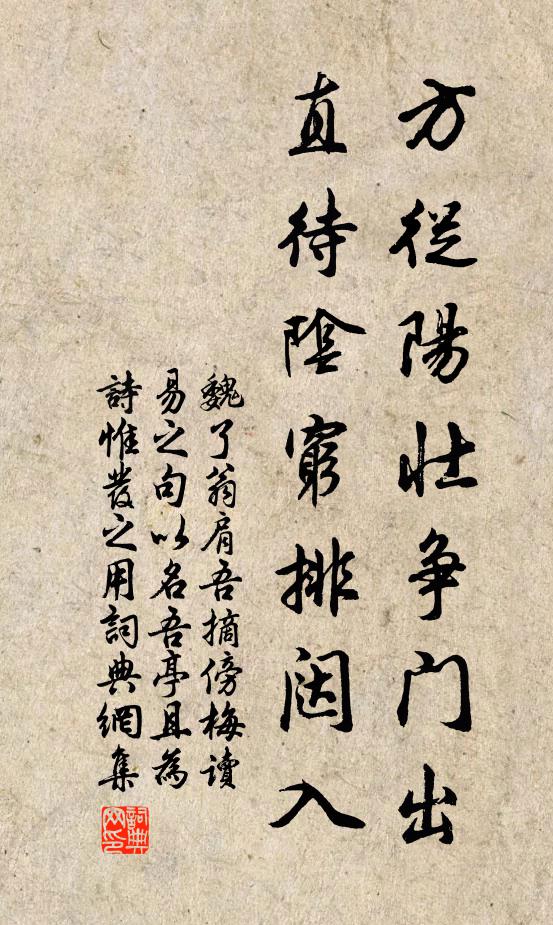 方從陽壯争门出
直待陰窮排闥入
魏了翁肩吾摘傍梅讀
易之句以名吾亭且為
詩惟發之用詞典網集
詞典
网印